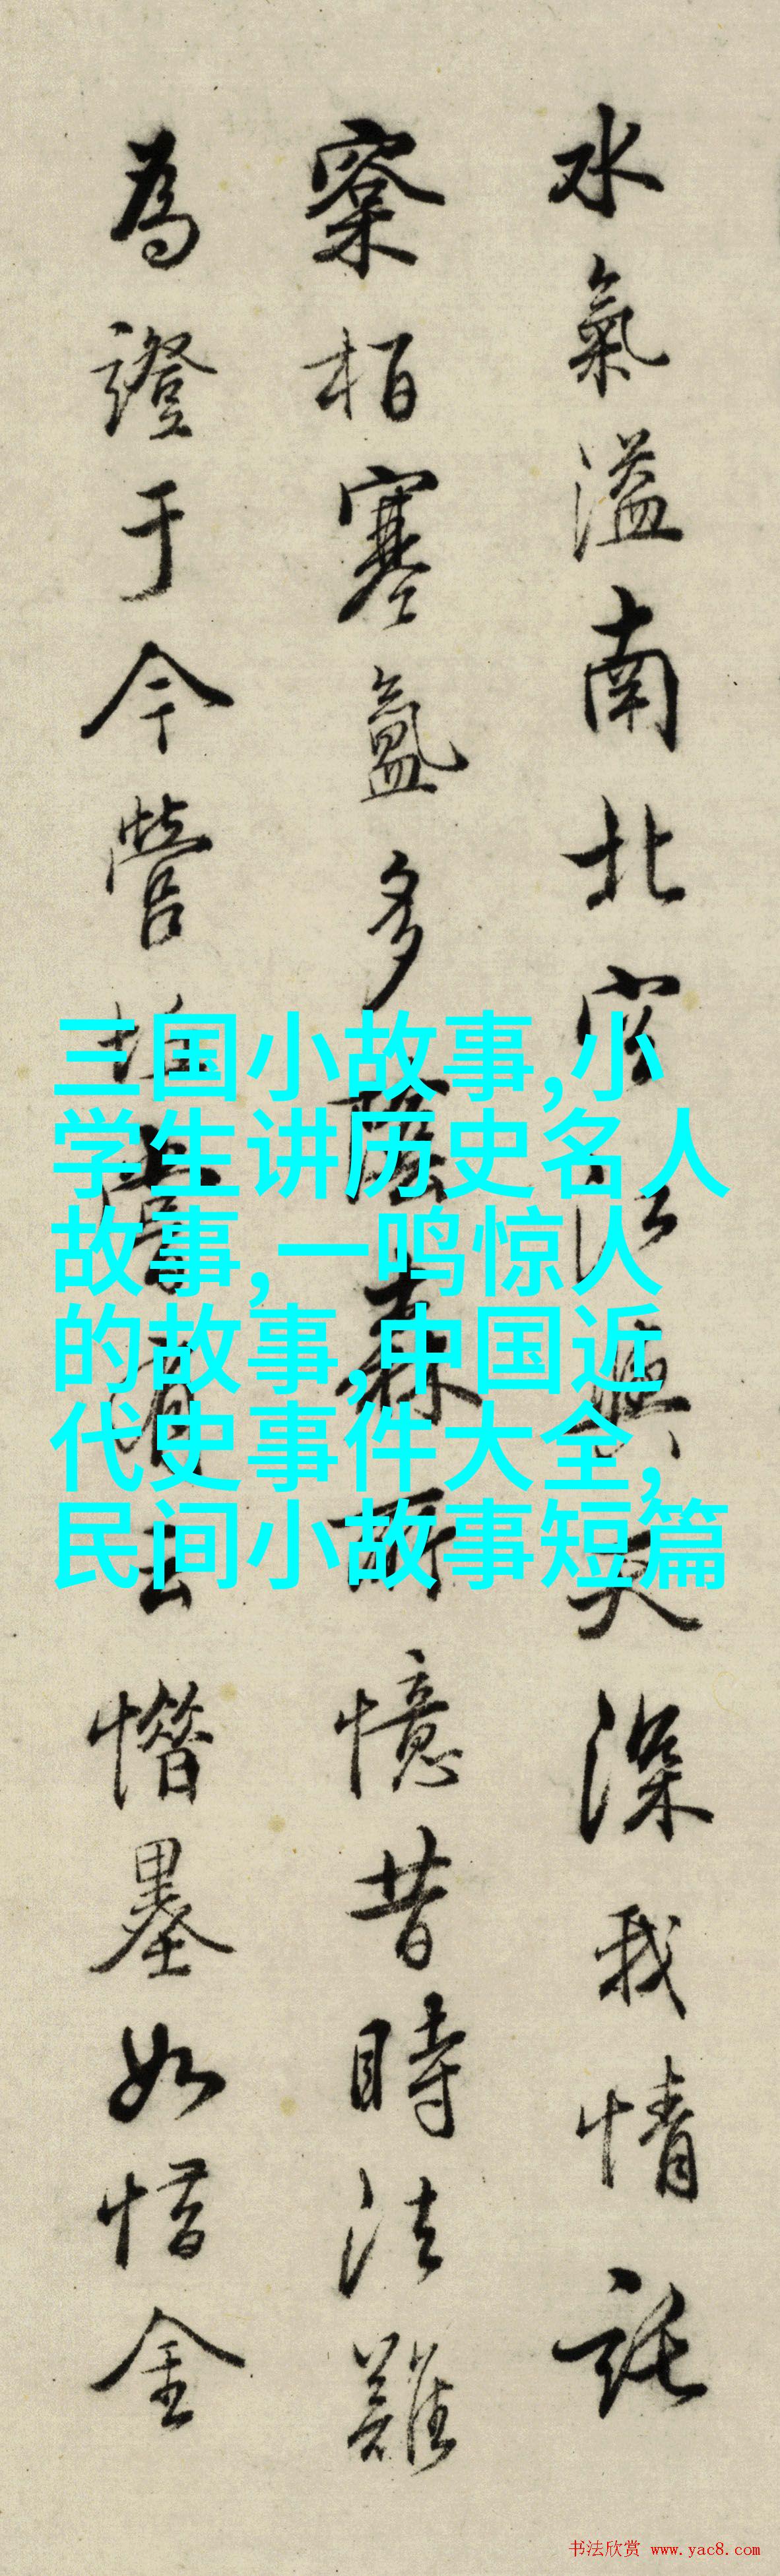 水氣溢南北江深我情託
柏塞氳多森所憶昔時法難
為證于今營去墨如惜金
三国小故事,小
学生讲历史名人
故事,一鸣惊人
的故事,中国近
代史事件大全,
民间小故事短篇
书法欣赏 www.yac8.com